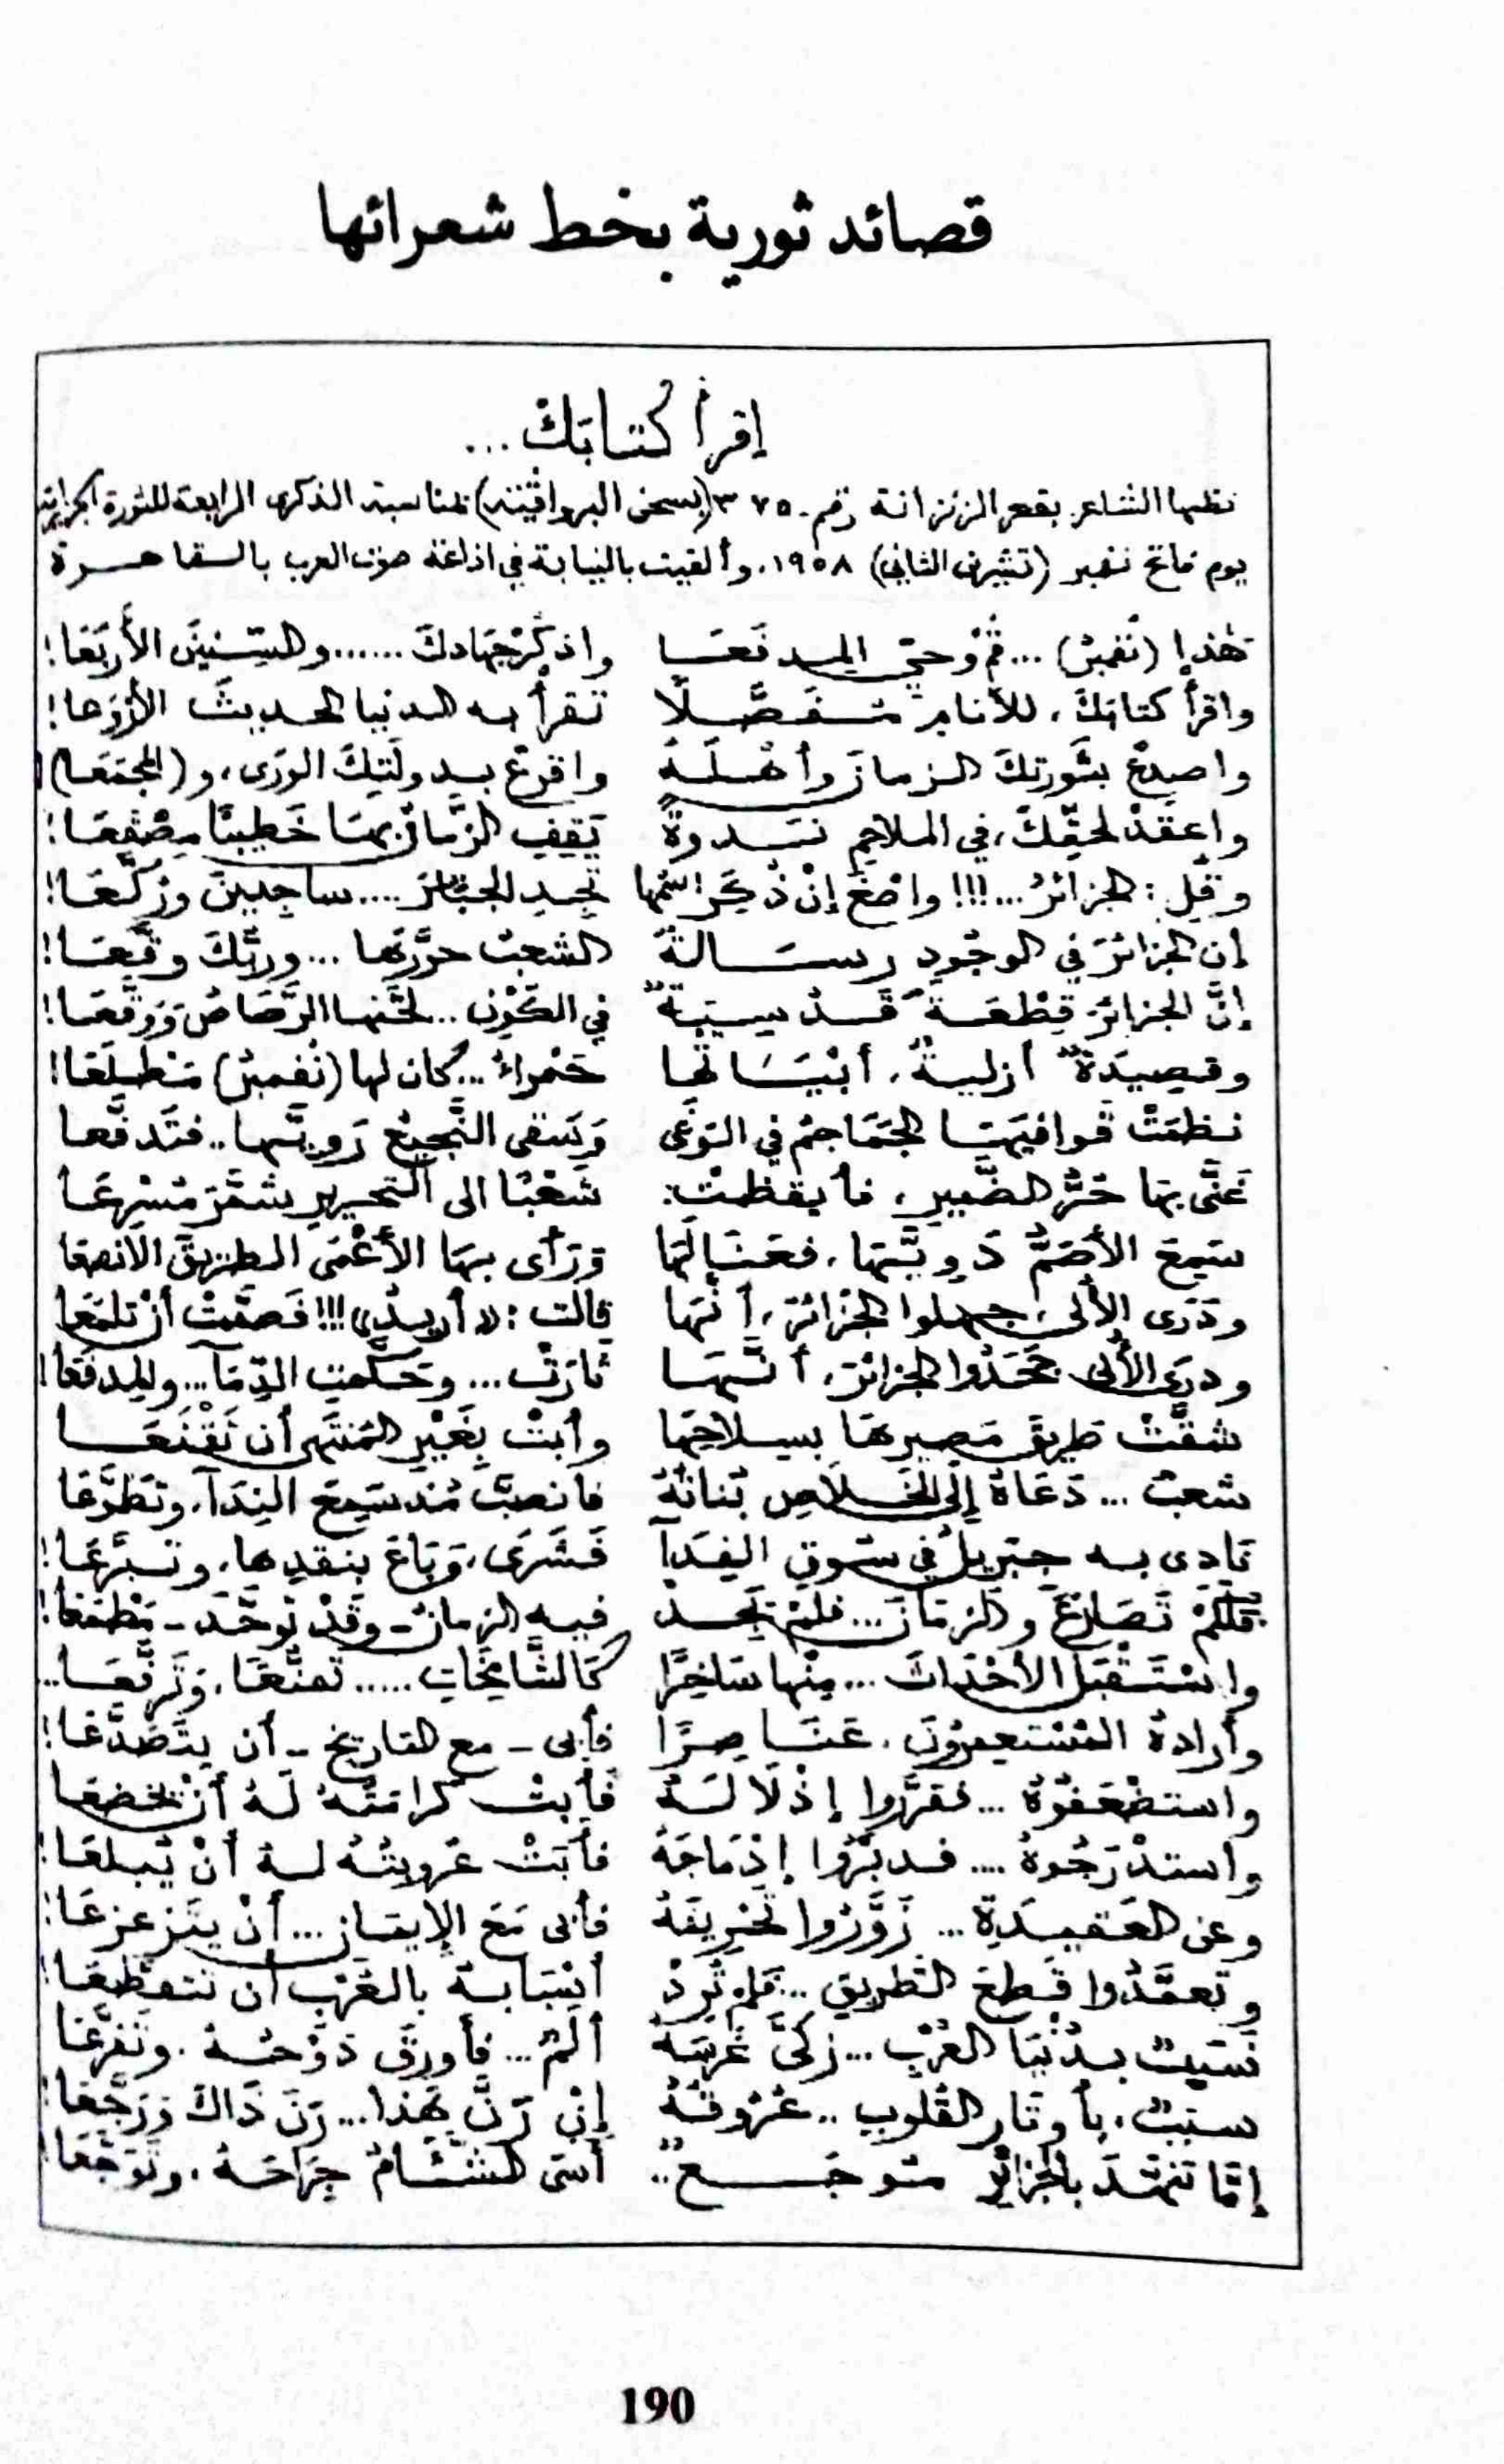 قصائد ثورية بخط شعرائها
إقرأ كتابَكْ...
نظمها الشاعر بقعر الزنزانة رقم ٣٧٥ (بسجن البرواقية) بمناسبة الذكرى الرابعة للثورة الجزائرية
يوم فاتح نفمبر (تشرين الثاني) ١٩٥٨، وألقيت بالنيابة في اذاعة صوت العرب بالقاهرة
هٰذا (نُفمبرُ)... قُمْ وحيّ المدفعَا واذكُرْ جِهَادكَ...... والسِّنينَ الأَربَعَا!
واقرأْ كتابَكَ، للأنامِ مُفَصَّلًا تقرأْ به الدنيا الحديثَ الأروَعا!
واصدعْ بثَورتكَ الزمانَ وأهْلَهُ واقرعْ بدولَتِكَ الورَى، و(المجمَعَا)!
واعقِدْ لحقِّكَ، في الملاحمِ نَدوةً يَقِفِ الزَّمانُ بهَا خَطيبًا مِصْقَعَا!
وقُلِ: الجزائرُ...!!! واصْغَ إنْ ذُكِرَ اسْمُها تَجِدِ الجبَابرَ.... ساجِدينَ ورُكَّعَا!
إن الجزائرَ في الوجُودِ رسَالةٌ الشعبُ حرَّرَها... وربُّكَ وقَّعَا!
إنَّ الجزائرَ قِطْعَةٌ قُدْسِيَّةٌ في الكَوْنِ.. لحَّنَها الرَّصَاصُ وَوَقَّعَا!
وقصِيدَةٌ أزليةٌ، أبْيَاتُها حَمْراءُ... كان لها (نُفمبرُ) مَطْلَعَا!
نظمَتْ قوافيَهَا الجَمَاجمُ في الوَغَى وَسَقى النَّجيعُ رَويَّها.. فتَدفَّعا
غَنَّى بها حُرُّ الضَّميرِ، فأيقظتْ شَعْبًا الى التحريرِ شمَّرَ مُسْرِعَا
سَمِعَ الأصَمُّ دَويَّهَا، فعَنَا لَهَا ورَأى بهَا الأعْمَى الطريقَ الأنصعا
ودَرَى الأُلى جهلوا الجزائرَ، أنَّهَا قالت: «أريدُ»!!! فَصمَّمتْ أنْ تلمَعَا
ودرَى الأُلى جَحَدُوا الجزائرَ، أنَّهَا ثارَتْ... وحَكَّمتِ الدِّمَآ... والمِدفَعَا!
شقَّتْ طريقَ مَصيرِهَا بسِلاحِهَا وأبتْ بِغَيْرِ المُنتَهى أن تَقْنَعَا
شعبٌ... دَعَاهُ إلى الخَلاصِ بُناتُهُ فانصبَّ مُذ سَمِعَ النِدَآ، وتَطَوَّعَا
نادى به جبْريلُ في سُوقِ الفِدَآ فَشَرَى، وَبَاعَ بنقدِها، وتبَرَّعَا!
فلكَمْ تَصَارَعَ والزمَانَ... فلمْ يَجِدْ فيه الزمانُ - وقَدْ تَوحَّدَ - مَطْمَعَا!
واسْتَقْبَلَ الأحْدَاثَ... مِنْها سَاخِرًا كَالشَّامِخَاتِ..... تمنُّعًا، وتَرفُّعَا..
وأرادهُ المُسْتعمِرُونَ، عَنَاصِرًا فأبى - مع التاريخِ - أن يتَصَدَّعَا!
واستضْعَفُوهُ... فقرَّروا إذْلَالَهُ فأبتْ كرامَتُهُ لَهُ أنْ يخضعا
واستدْرَجُوهُ.... فدبَّرُوا إدْمَاجَهُ فأبَتْ عُروبتُهُ له أنْ يُبلعَا!
وعن العَقيدَةِ... زوَّرُوا تَحْرِيفَهُ فأبى مَعَ الإيمَانِ... أنْ يتَزعزعَا!
وتعمَّدُوا قَطعَ الطريقِ... فلم تُرِدْ أنْسَابهُ بالعُرْبِ أن تتقطَّعَا!
نَسَبٌ بدُنْيَا العُرْبِ... زكَّى غَرسَهُ ألَمٌ... فأورقَ دَوْحُهُ، وتَفرَّعَا
سببٌ، بأوتارِ القُلوبِ.. عُرُوقُهُ إنْ رَنَّ هَذا... رَنَ ذَاكَ ورَجَّعَا!
إمَّا تنَهَّدَ بالجزائرِ مُوجَعٌ.. آسَى الشَّآمُ جِرَاحَهُ، وتَوَجَّعَا!
190